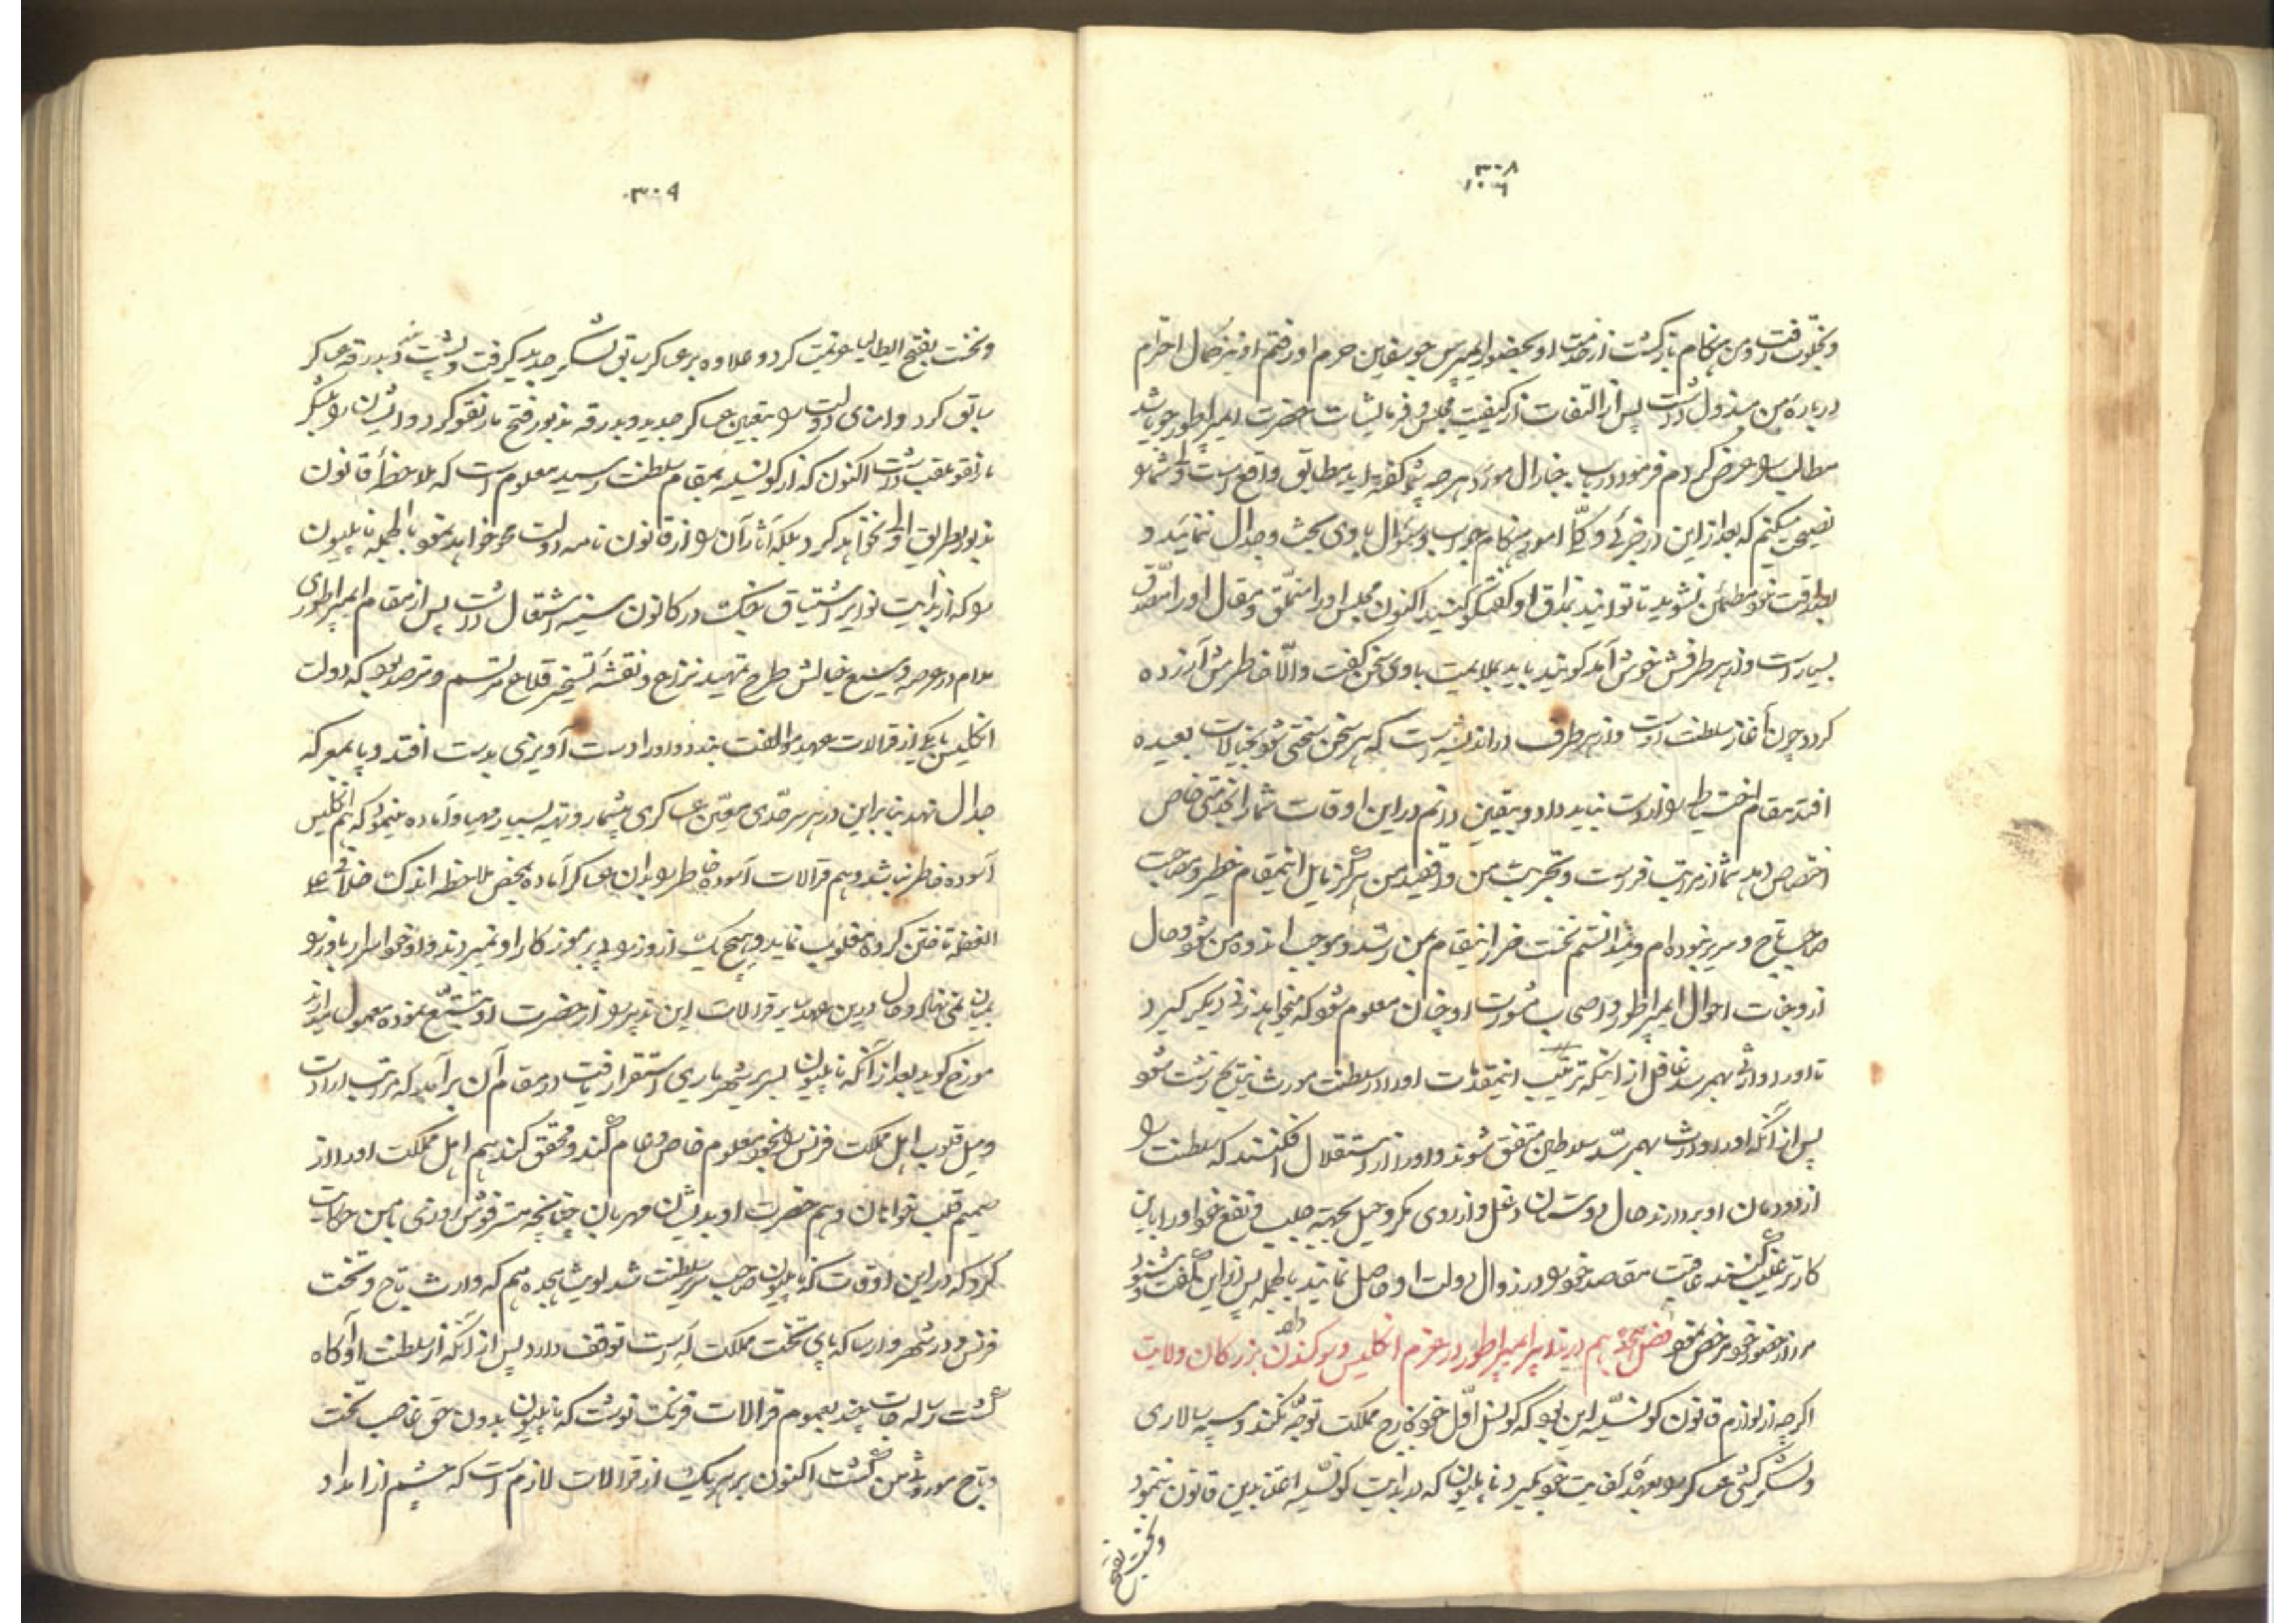 ۳۰۸
۱۰۶
و بخلوت رفت و من هنگام بازگشت از خدمت او بحضور ایمپرس جوسفاین حرم او رفتم او نیز کمال احترام
درباره من مبذول داشت پس از التفات از کیفیت مجلس و فرمایشات حضرت ایمپراطور جویا شد
مطالب را عرض کردم فرمود در باب جنارال مورو هرچه شما گفته اید مطابق واقع است ولی شما را
نصیحت میکنم که بعد از این در جزئی و کلی امور هنگام جواب و سئوال با وی بحث و جدال ننمائید و
بصداقت خود مطمئن نشوید تا توانید بمذاق او گفتگو کنید اکنون مجلس او را متملق و مقال او را مصدق
بسیار است و از هر طرفش خوش آمد گویند باید بملایمت با وی سخن گفت والّا خاطرش آزرده
گردد چون آغاز سلطنت اوست و از هر طرف در اندیشه است که بهر سخن سختی شود بخیالات بعیده
افتد مقام احتیاط را از دست نباید داد و بیقین دانم در این اوقات شما را بخدمتی خاص
اختصاص دهد شما از مراتب فراست و تجربت من واقفید من هرگز مایل اینمقام خطیر و صاحب
صاحب تاج و سریر نبوده ام و میدانستم نخست ضرر اینمقام بمن رسد و موجب اندوه من شود و حال
از وجنات احوال ایمپراطور و اصحاب مشورت او چنان معلوم شود که میخواهد زنی دیگر گیرد
تا او را وارثی بهمرسد غافل از اینکه ترتیب اینمقدمات او را در سلطنت مورث نتیجه زشت شود
پس از آنکه او را وارث بهمرسد سلاطین متفق شوند و او را از استقلال افکنند که سلطنت را
از دودمان او بردارند حال دوستان دغل و از روی مکر و حیل بجهة جلب و نفع خود او را باین
کار ترغیب کنند عاقبت مقصد خود را در زوال دولت او حاصل نمایند بالجمله پس از این گفت و شنود
مرا از حضور خود مرخص نمود فصل هجدهم در تدابیر ایمپراطور در عزم انگلیس و سوگند دادن بزرگان ولایت
اگرچه از لوازم قانون کونسلیه این بود که کونسل اول خود بخارج مملکت توجه نکند و سپه سالاری
و لشکر کشی عساکر را بعهده کفایت خود نگیرد ناپلیون که در بدایت کونسلیه اعتنا بدین قانون ننمود
و نخست بفتح
۳۰۹
و نخست بفتح ایطالیا عزیمت کرد و علاوه بر عساکر سابق لشکر جدید گرفت و بدرقه عساکر
سابق کرد و امنای دولت را بتعیین عساکر جدید و بدرقه مذبور فتح مارنقو کرد و ایشان را بلشکر
مارنقو ملقب داشت اکنون که از کونسلیه بمقام سلطنت رسید معلوم است که ملاحظهٔ قانون
مذبور بطریق اولی نخواهد کرد بلکه آثار آن را از قانون نامه دولت محو خواهد نمود بالجمله ناپلیون
را که از بدایت نوایر اشتیاق بجنگ در کانون سینه اشتعال داشت پس از مقام ایمپراطوری
مدام در عرصه وسیع خیالش طرح تمهید نزاع و نقشهٔ تسخیر قلاع مرتسم و مترصد بود که دولت
انگلیس با یکی از قرالات عهد موالفت بندد و او را دست آویزی بدست افتد و پا بمعرکه
جدال نهد بنابر این در هر سرحدی معین عساکری بیشمار و تهیه بسیار مهیا و آماده مینمود که هم انگلیس
آسوده خاطر نباشد و هم قرالات آسوده خاطر را بدان عساکر آماده بمحض ملاحظه اندک خلافی علی
الغفله تاختن کرده مغلوب نماید و هیچ یک از وزرا پی برموز کار او نمیبردند و او خود اسرار باوزرا
بمیان نمی نهاد و حال در این عهد سایر قرالات این تدبیر را از حضرت او تتبع نموده معمول میدارند
مورخ گوید بعد از آنکه ناپلیون بسریر شهریاری استقرار یافت در مقام آن برآمد که مراتب ارادت
و میل قلوب اهل مملکت فرنس را بخود معلوم خاص و عام کند و محقق کند هم اهل مملکت او را از
صمیم قلب خواهان و هم حضرت او بدیشان مهربان چنانچه مستر فوش روزی با من حکایت
کرد که در این اوقات که ناپلیون صاحب سریر سلطنت شد لویش هجدهم که وارث تاج و تخت
فرنس و در شهر وارسا که پای تخت مملکت له است توقف دارد پس از آنکه از سلطنت او آگاه
گشت رساله جات چند بعموم قرالات فرنگ نوشت که ناپلیون بدون حق غاصب تخت
و تاج موروثی من گشت اکنون بر هریک از قرالات لازم است که چشم از امداد